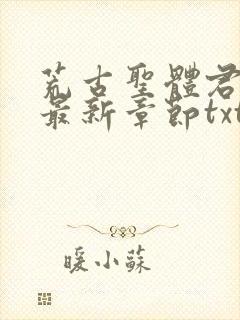 荒古聖體君
最新章節txt
暖小蘇